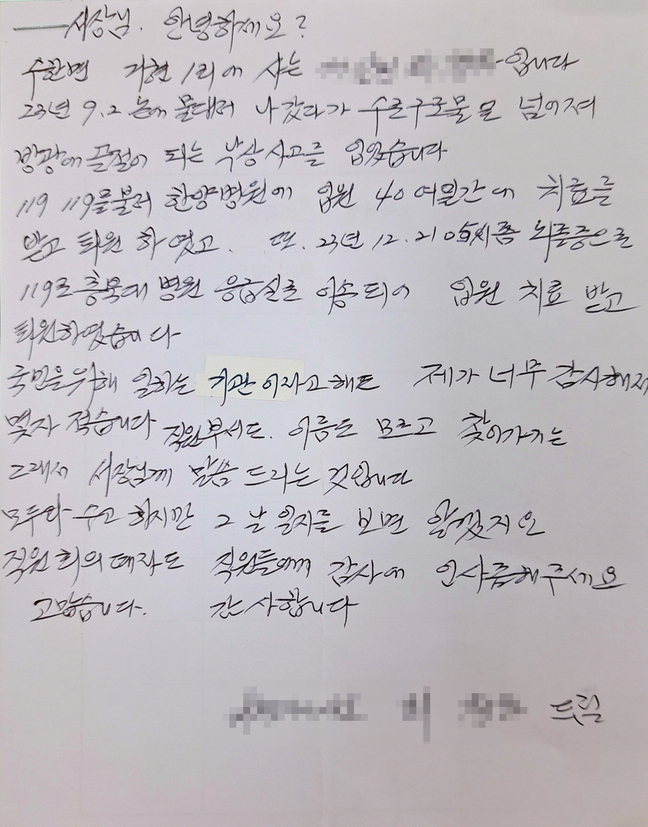 서장님. 안녕하세요?
수한면 거현1리에 사는 입니다
23년 9.2 논에 물대러 나갔다가 수로구로물로 넘어져
방광에 골절이 되는 부상사고를 입었습니다
119 119를불러 한양병원에 입원 40여일간에 치료를
받고 퇴원 하였고. 또. 23년 12.21 05시쯤 뇌졸증으로
119로 충북대 병원 응급실로 이송되어 입원 치료 받고
퇴원하였습니다
국민을위해 일하는 기관이라고해도 제가 너무 감사해서
몇자 적습니다 직원부서도. 이름도 모르고 찾아가기는
그래서 서장님께 말씀 드리는 것입니다
모두다 수고 하지만 그 날 일지를 보면 알겠지요
직원 회의때라도 직원들에게 감사에 인사좀해주세요
고맙습니다. 감사합니다
드림